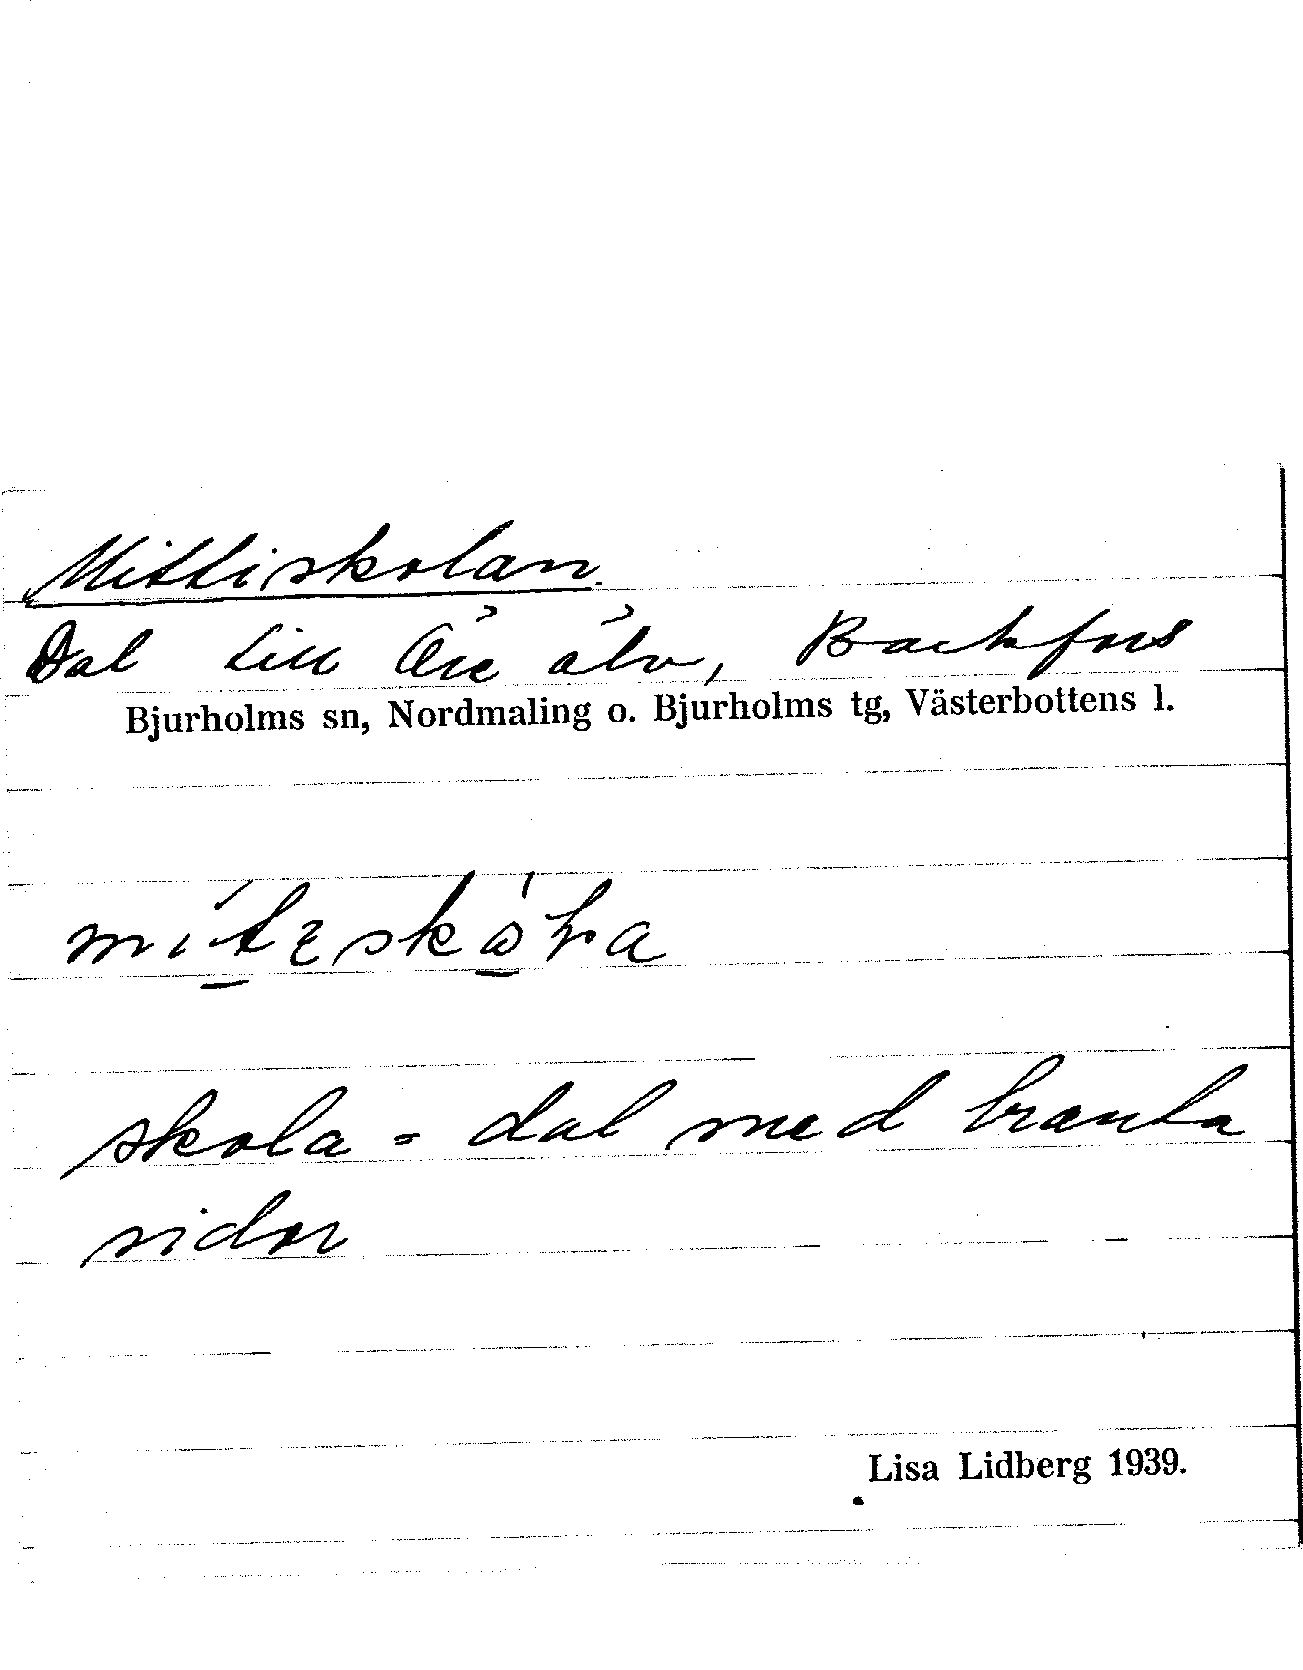 Mittiskolan.
Dal till Öre älv, Backfors
Bjurholms sn, Nordmaling o. Bjurholms tg, Västerbottens l.
skola = dal med branta
sidor
Lisa Lidberg 1939.